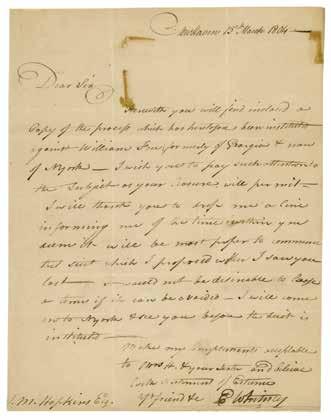 NewHaven 15th March 1804
Dear Sir
Herewith you will find inclosed a
Copy of the process which has heretofore been instituted
against William formerly of Georgia & now
of NYork — I wish you to pay such attention to
the Subject as your leisure will permit —
I will thank you to drop me a line
informing me of the time within you
deem it will be most proper to commence
the suit which I proposed when I saw you
last — would not be desirable to Loose
a term if it can be avoided — I will come
on to NYork & see you before the suit is
instituted —
Make my Compliments acceptable
to Mrs H. & your and believe
Sentiment of Esteem
Yr friend &c E Whitney
S. M. Hopkins Esq.